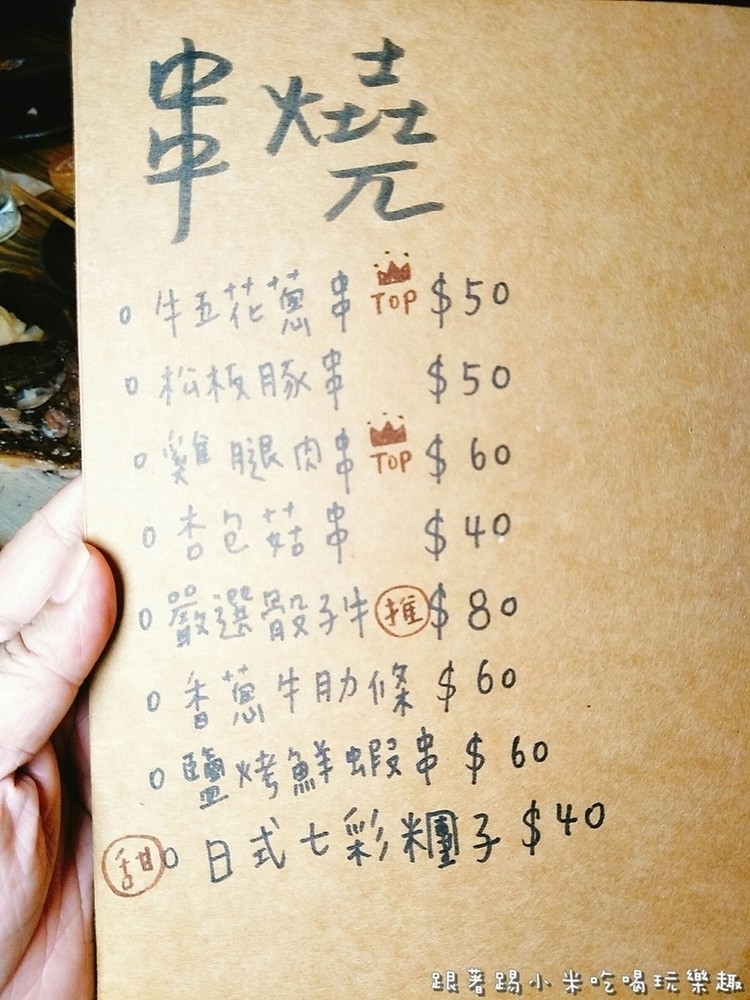 串燒
牛五花蔥串 TOP $50
松板豚串 $50
雞腿肉串 TOP $60
杏包菇串 $40
嚴選骰子牛 推 $80
香蔥牛肋條 $60
鹽烤鮮蝦串 $60
甜 日式七彩糰子 $40
跟著踢小米吃喝玩樂趣